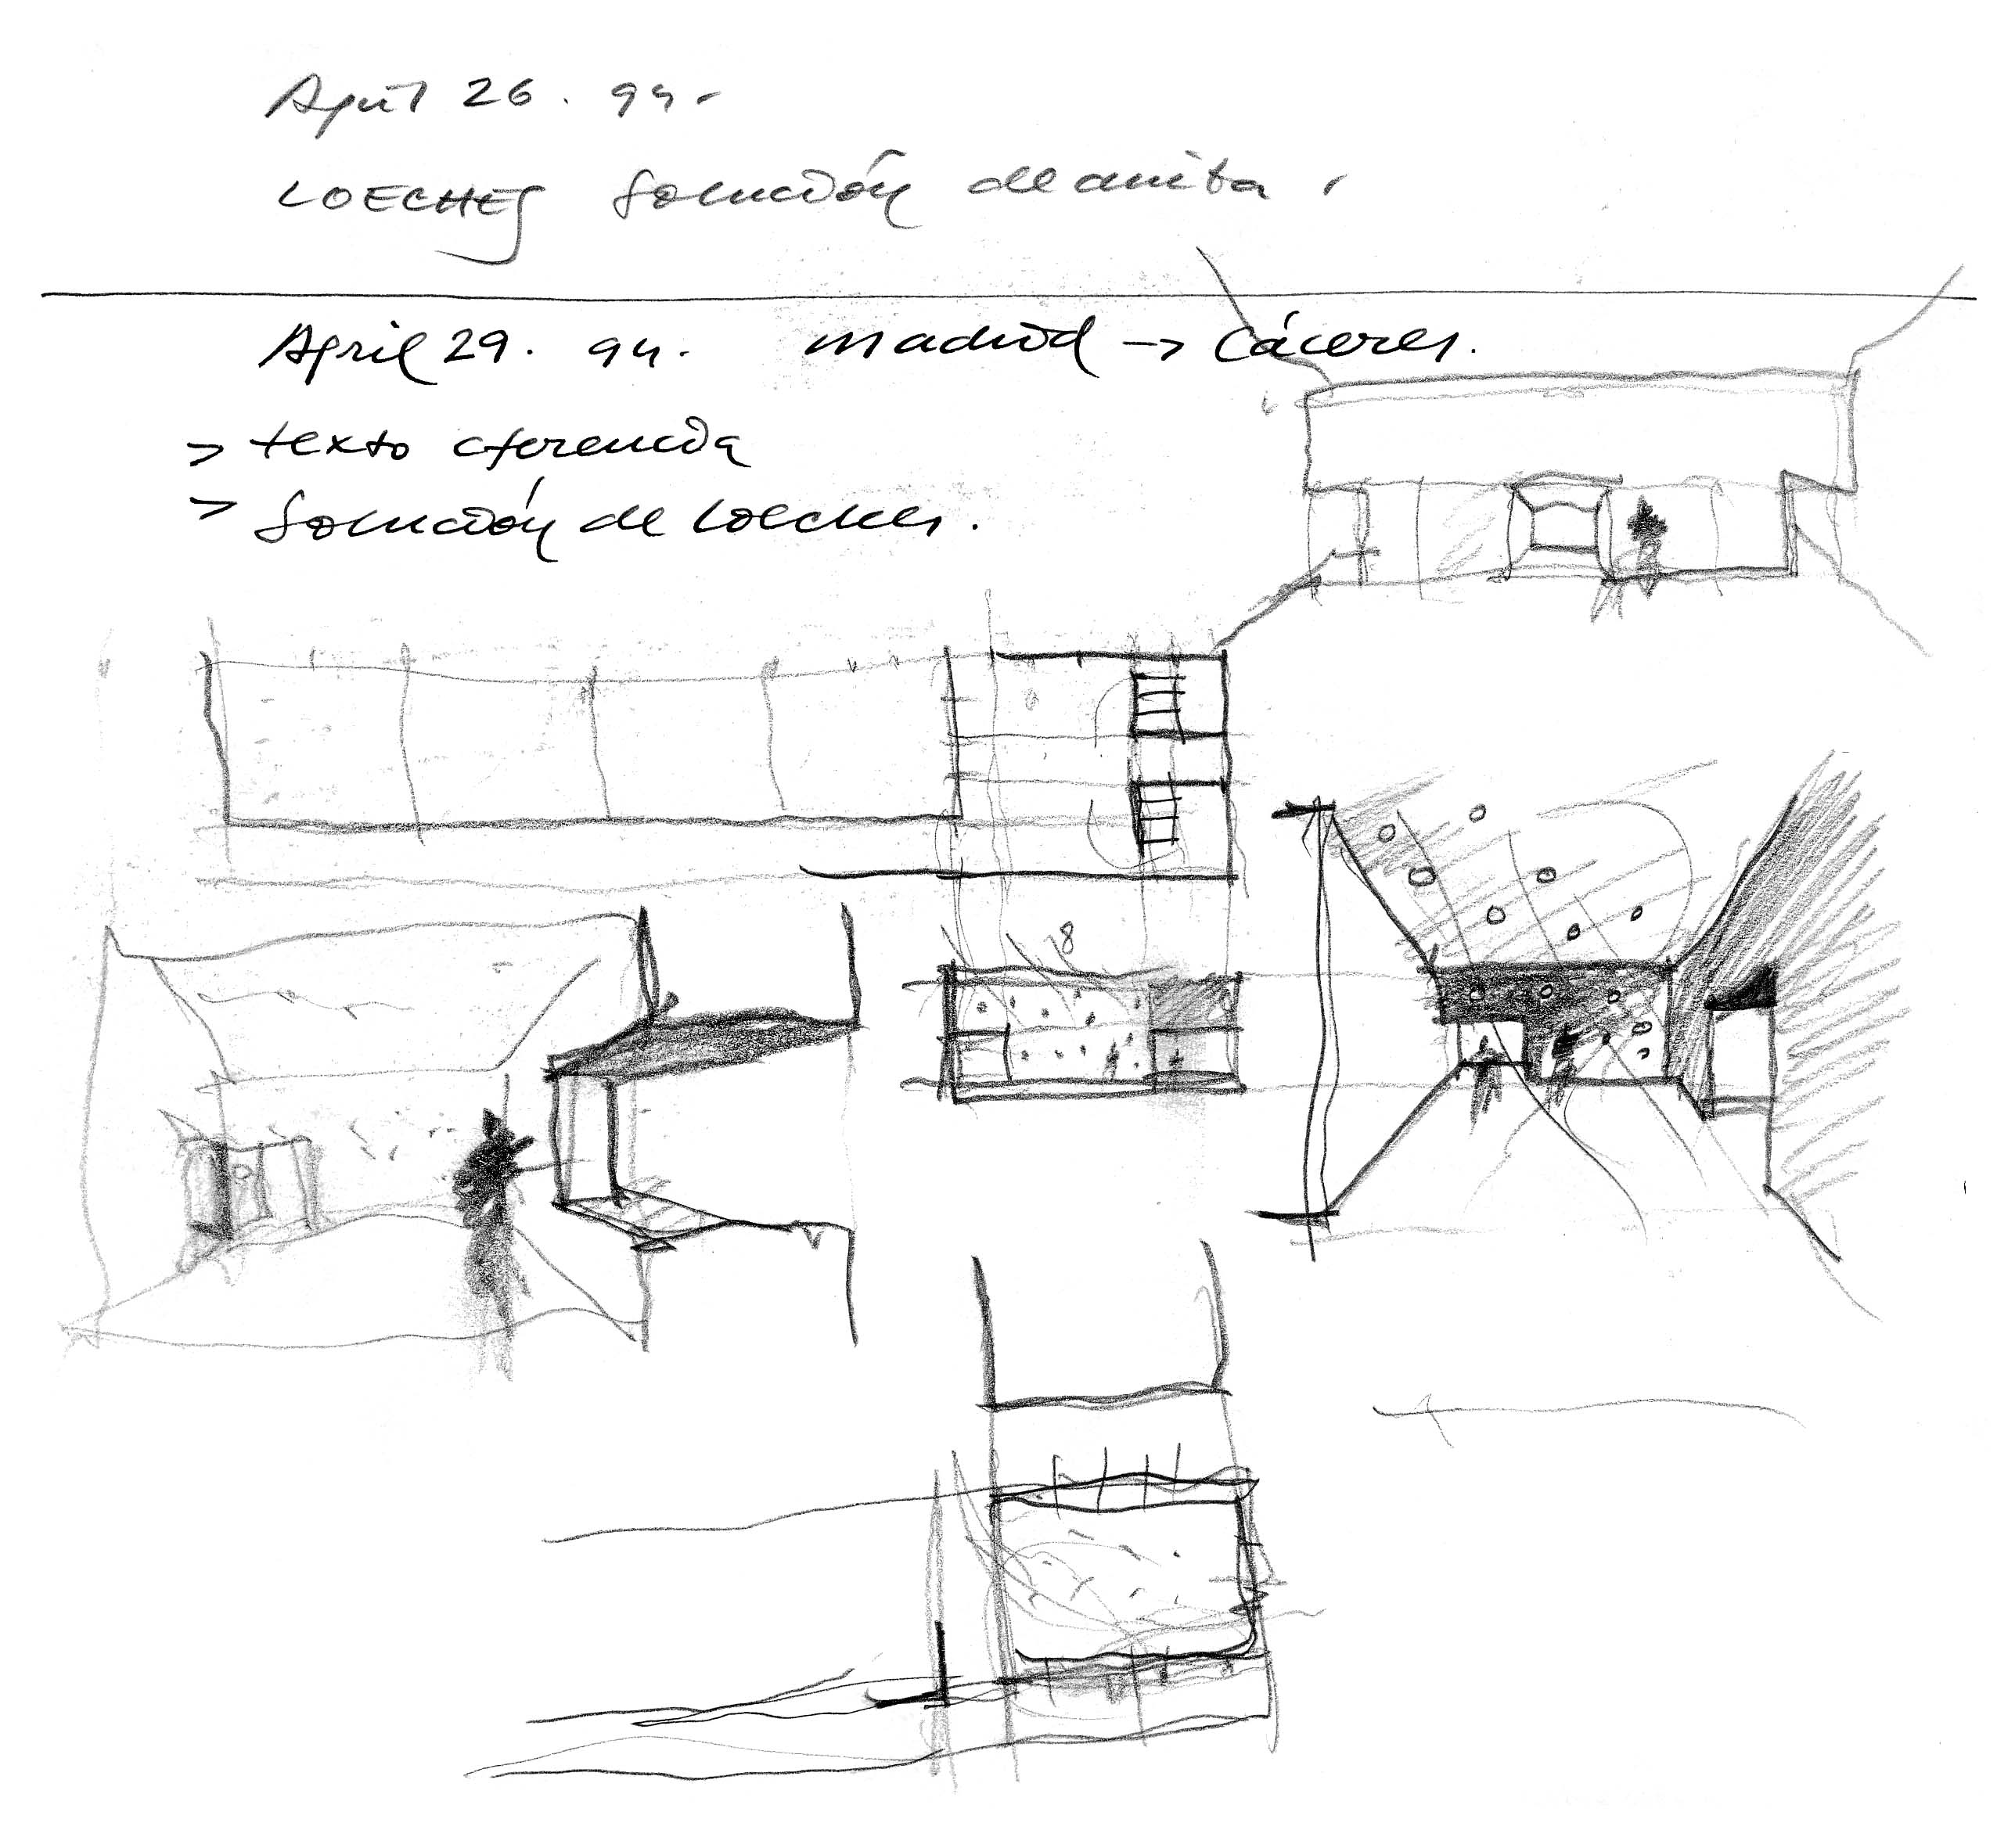 April 26. 94.
LOECHES Solución de anita.
April 29. 94. madrid → Cáceres.
> texto cferencia
> Solución de Loeches.
8